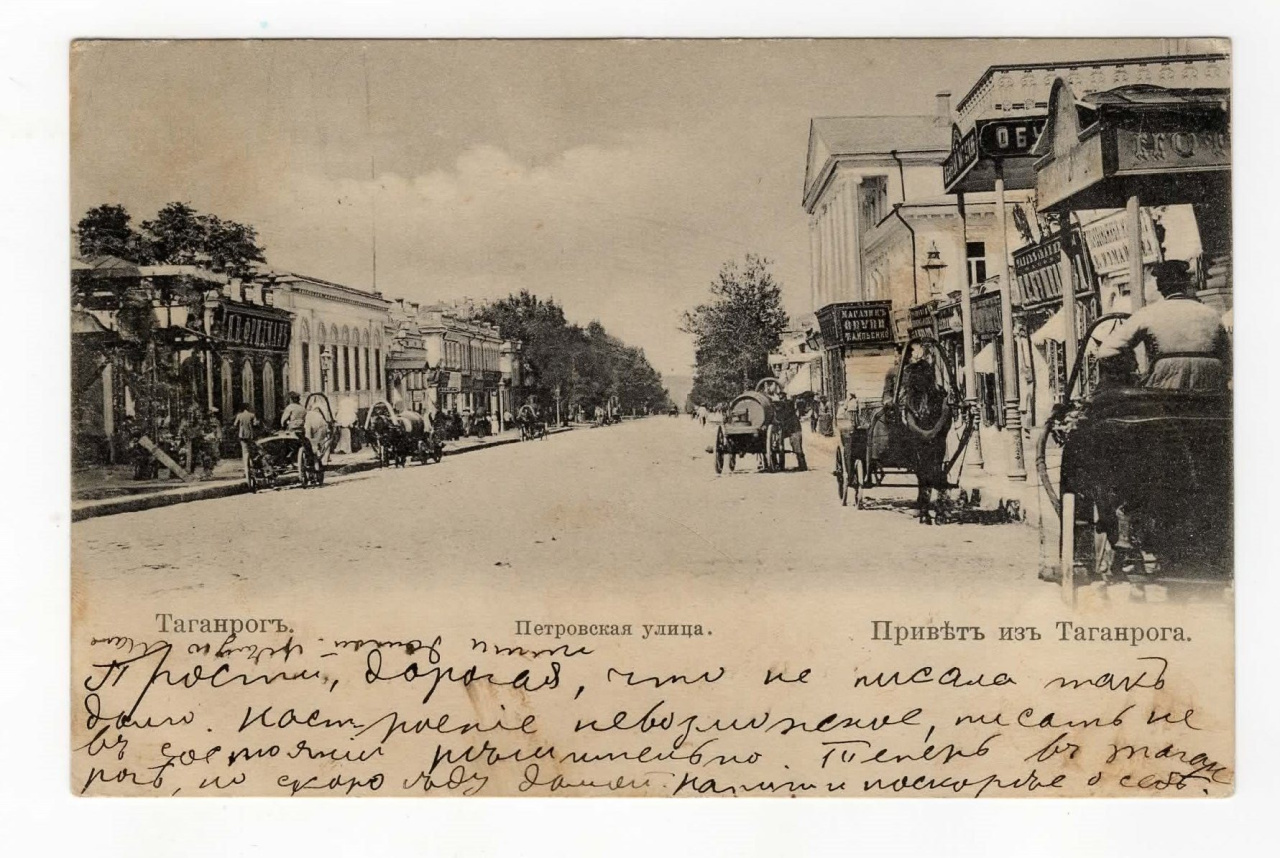 ОБУ
МАГАЗИНЪ
ОБУВИ
Таганрогъ.
Петровская улица.
Привѣтъ изъ Таганрога.
пиши домой. Цѣлую
Прости, дорогая, что не писала такъ
долго. Настроеніе невозможное, писать не
въ состояніи рѣшительно. Теперь въ Таган
рогѣ, но скоро ѣду домой. Напиши поскорѣе о себѣ.